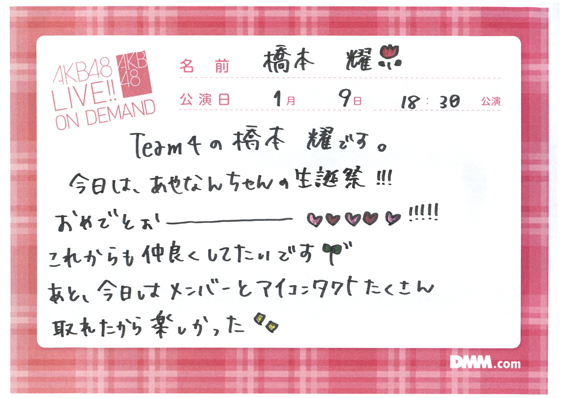 AKB48
LIVE!!
ON DEMAND
AKB
48
名前 橋本 耀
公演日 1月 9日 18:30 公演
Team4の橋本 耀です。
今日は、あやなんちゃんの生誕祭!!!
おめでとぉ――――♥♥♥♥♥!!!!!
これからも仲良くしてたいです
あと、今日はメンバーとアイコンタクトたくさん
取れたから楽しかった
DMM.com